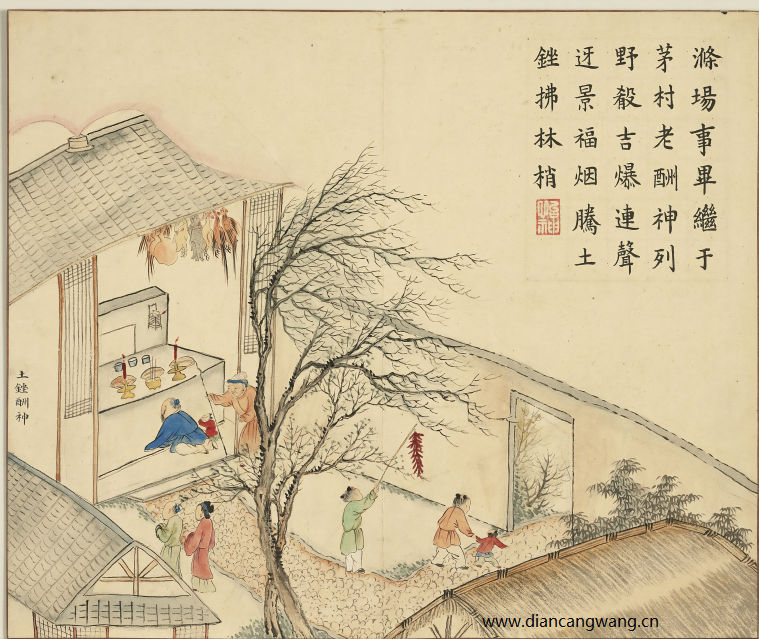 滌場事畢繼于
茅村老酬神列
野殽吉爆連聲
迓景福烟騰土
銼拂林梢
土銼酬神
www.diancangwang.cn